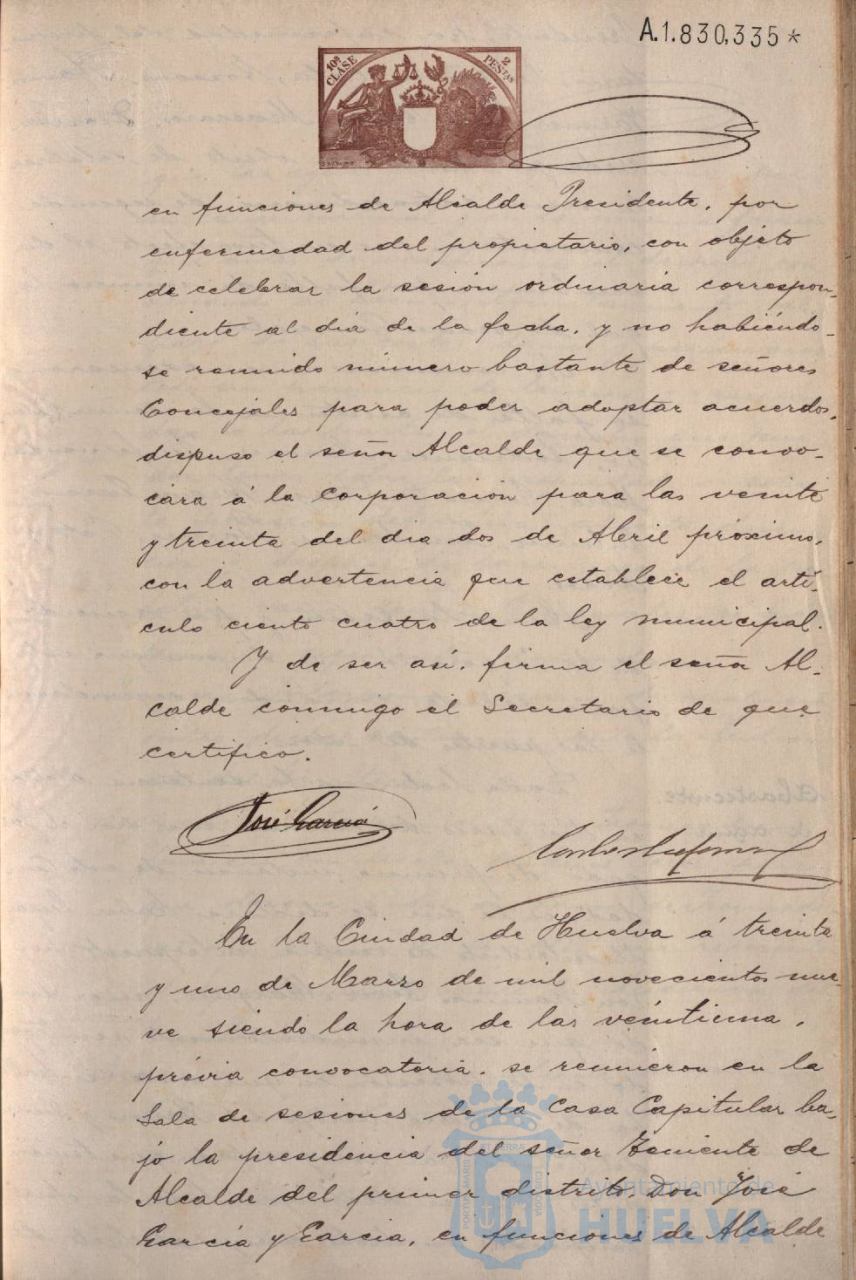 A.1.830,335*
10ª CLASE
2 PESTAS
en funciones de Alcalde Presidente, por
enfermedad del propietario, con objeto
de celebrar la sesión ordinaria correspon-
diente al día de la fecha, y no habiéndo-
se reunido número bastante de señores
Concejales para poder adoptar acuerdos,
dispuso el señor Alcalde que se convo-
cara á la corporación para las veinte
y treinta del dia dos de Abril próximo,
con la advertencia que establece el artí-
culo ciento cuatro de la ley municipal.
Y de ser así, firma el señor Al-
calde conmigo el Secretario de que
certifico.
José García
En la Ciudad de Huelva á treinta
y uno de Marzo de mil novecientos nue-
ve siendo la hora de las veintiuna,
prévia convocatoria, se reunieron en la
Sala de sesiones de la Casa Capitular ba-
jo la presidencia del señor Teniente de
Alcalde del primer distrito, Don José
García y García, en funciones de Alcalde
Ayuntamiento de
HUELVA